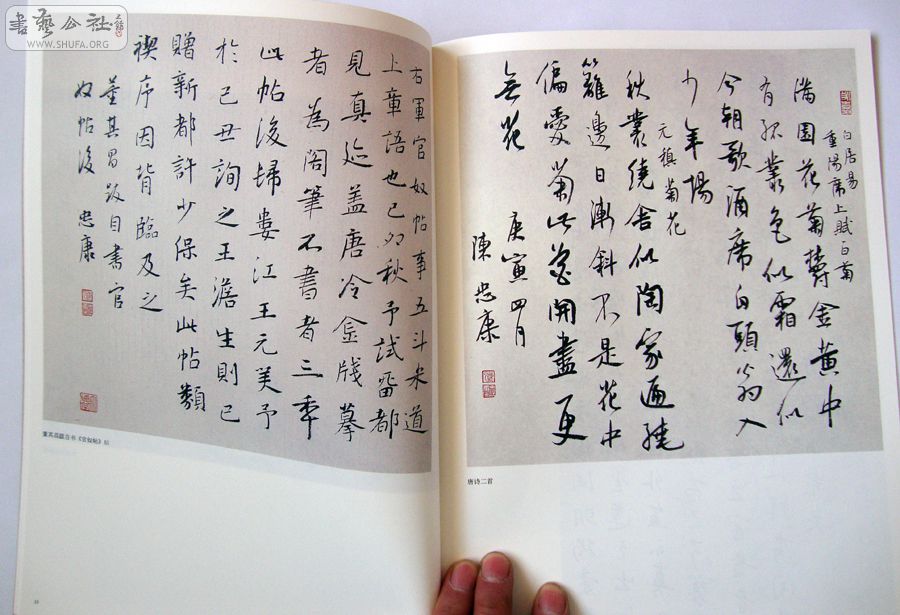 書藝公社
WWW.SHUFA.ORG
右軍官奴帖事五斗米道
上章語也己卯秋予試留都
見真迹蓋唐冷金牋摹
者為閣筆不書者三年
此帖後歸婁江王元美予
於己丑詢之王澹生則已
贈新都許少保矣此帖類
禊序因背臨及之
董其昌跋自書官
奴帖後 忠康
董其昌跋自书《官奴帖》后
白居易
重陽席上賦白菊
滿園花菊鬱金黃中
有孤叢色似霜還似
今朝歌酒席白頭翁入
少年場
元稹菊花
秋叢繞舍似陶家遍繞
籬邊日漸斜不是花中
偏愛菊此花開盡更
無花
庚寅四月
陳忠康
唐诗二首